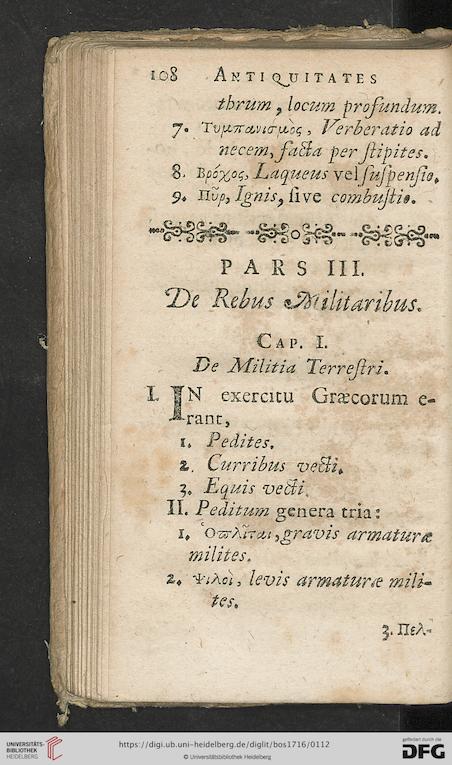 108 ANTIQUITATES
thrum, locum profundum.
7. Τυμπανισμὸς, Verberatio ad
necem, facta per ſtipites.
8. Βρόχος, Laqueus vel ſuſpenſio.
9. Πῦρ, Ignis, ſive combuſtio.
PARS III.
De Rebus Militaribus.
CAP. I.
De Militia Terreſtri.
I. IN exercitu Græcorum e-
rant,
1. Pedites.
2. Curribus vecti.
3. Equis vecti.
II. Peditum genera tria:
1. Ὁπλῖται, gravis armaturæ
milites.
2. Ψιλοὶ, levis armaturæ mili-
tes.
3. Πελ-
UNIVERSITÄTS-
BIBLIOTHEK
HEIDELBERG
https://digi.ub.uni-heidelberg.de/diglit/bos1716/0112
© Universitätsbibliothek Heidelberg
gefördert durch die
DFG